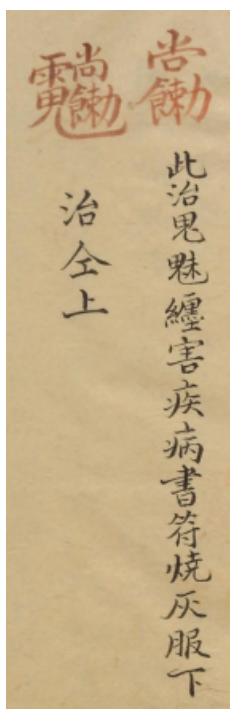 此治鬼魅纏害疾病書符燒灰服下
治仝上